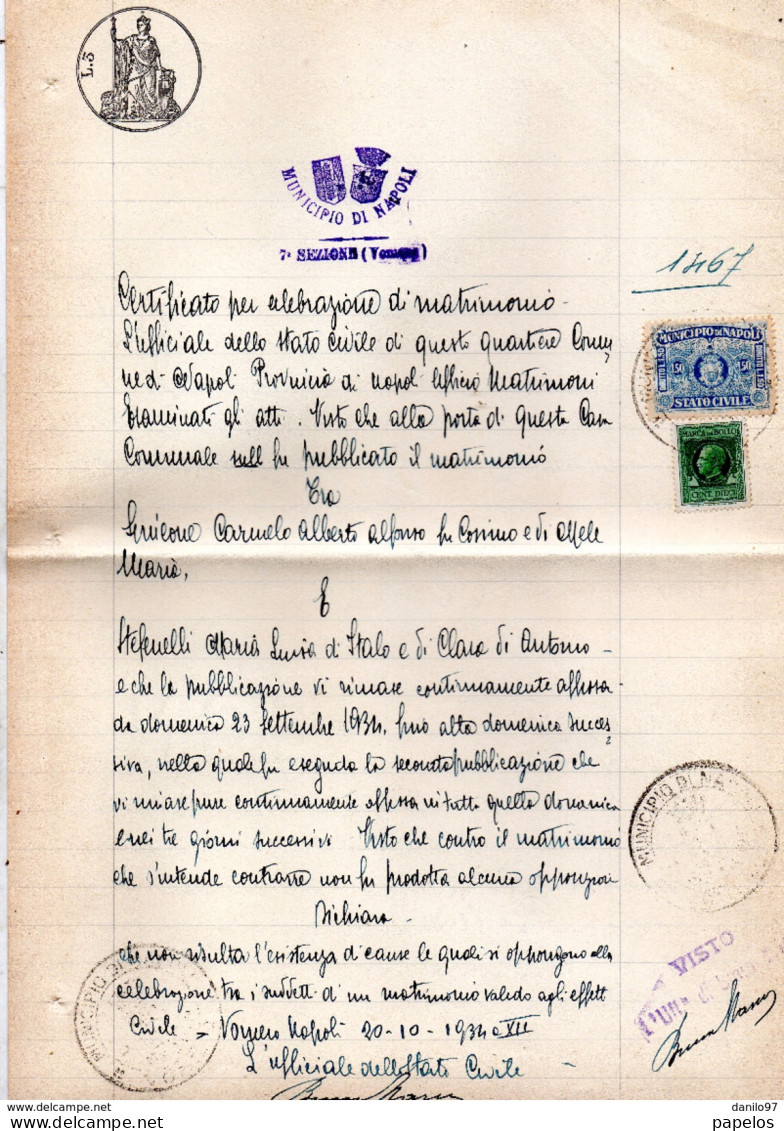 L.3
MUNICIPIO DI NAPOLI
7ª SEZIONE (Vomero)
1467
Certificato per celebrazione di matrimonio -
L'ufficiale dello stato civile di questo quartiere Comu
ne di Napoli Provincia di Napoli Ufficio Matrimoni
Esaminati gli atti. Visto che alla porta di questa Casa
Comunale fu pubblicato il matrimonio
MUNICIPIO DI NAPOLI
150 150
STATO CIVILE
MARCA DA BOLLO
CENT. DIECI
Tra
Carmelo Alberto Alfonso fu Cosimo e di Mele
Maria,
E
Stefenelli Maria Luisa di Italo e di Clara di Antonio -
e che la pubblicazione vi rimase continuamente affissa
da domenica 23 Settembre 1934, fino alla domenica succes
siva, nella quale fu eseguda la seconda pubblicazione che
vi rimase pure continuamente affissa in tutta quella domenica
e nei tre giorni successivi. Visto che contro il matrimonio
che s'intende contrarre non fu prodotta alcuna opposizione
MUNICIPIO DI NA
Dichiara -
che non risulta l'esistenza di cause le quali si oppongono alla
celebrazione tra i suddetti di un matrimonio valido agli effetti
Civile - Vomero Napoli 20-10-1934 XII
L'ufficiale dello Stato Civile
MUNICIPIO DI
VISTO
danilo97
papelos